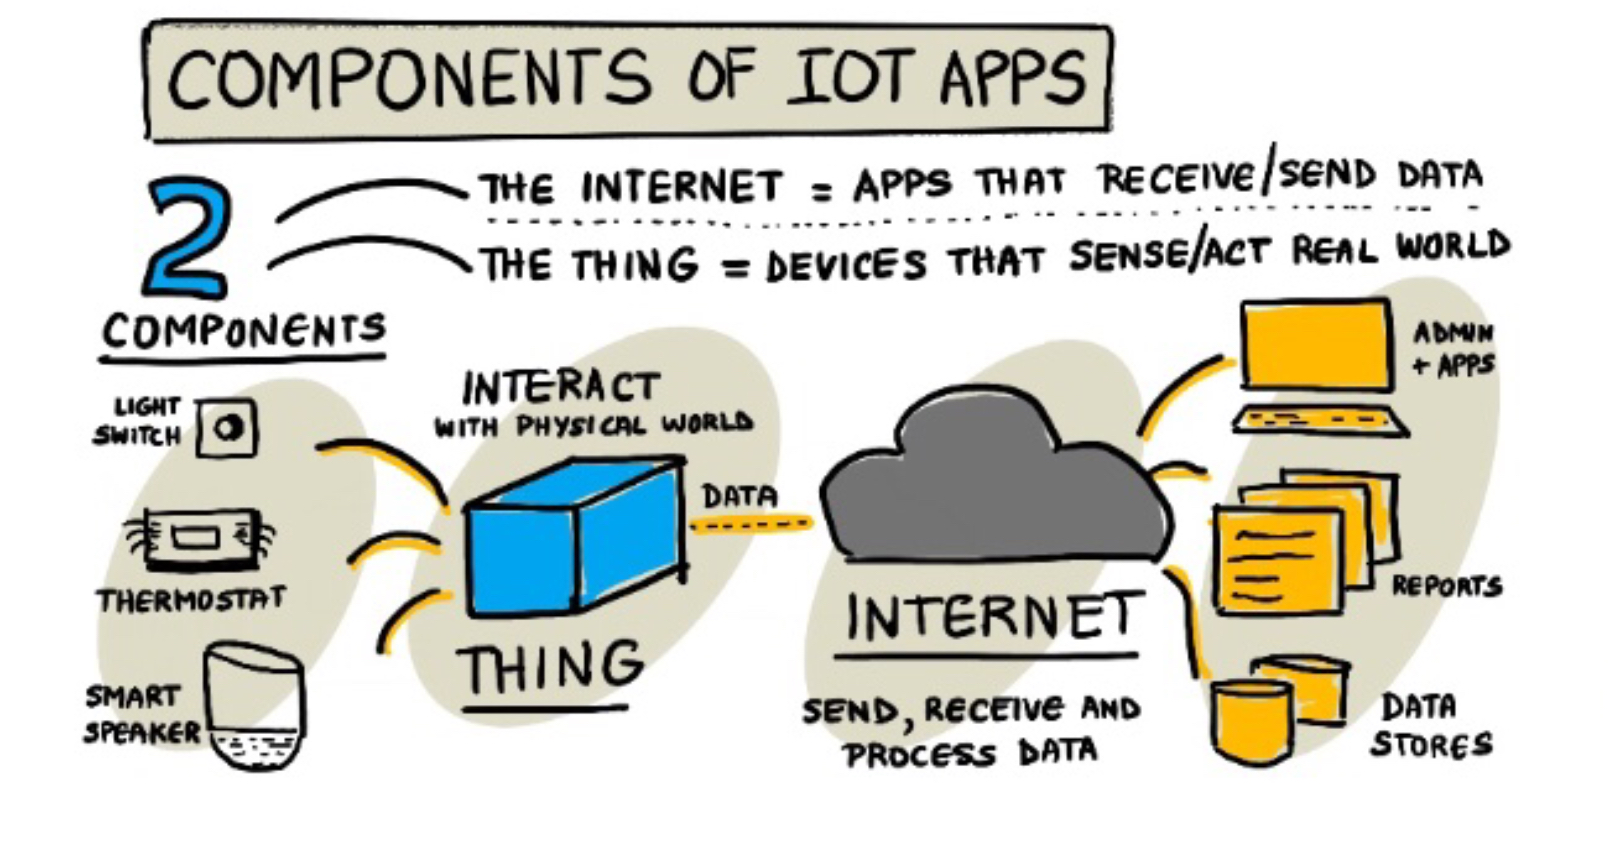 COMPONENTS OF IOT APPS
2
COMPONENTS
THE INTERNET = APPS THAT RECEIVE/SEND DATA
THE THING = DEVICES THAT SENSE/ACT REAL WORLD
LIGHT
SWITCH
THERMOSTAT
SMART
SPEAKER
INTERACT
WITH PHYSICAL WORLD
THING
DATA
INTERNET
SEND, RECEIVE AND
PROCESS DATA
ADMIN
+ APPS
REPORTS
DATA
STORES